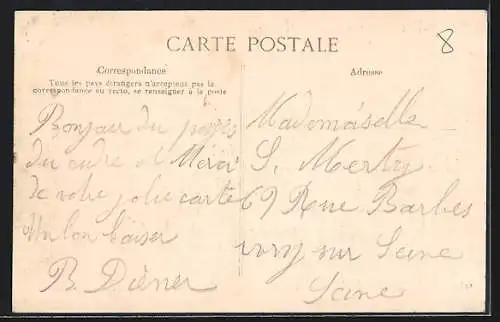 CARTE POSTALE
8
Correspondance
Tous les pays étrangers n'acceptent pas la
correspondance au recto, se renseigner à la poste
Bonjour du pays
du cidre et Merci
de votre jolie carte
Un bon baiser
B. Diener
Adresse
Mademoiselle
S. Mertry
69 Rue Barbes
ivry sur Seine
Seine